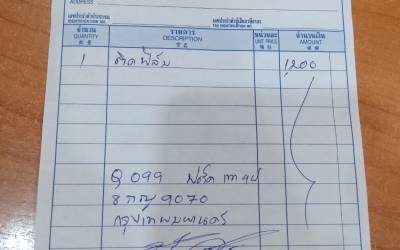 ADDRESS
เลขประจำตัวประชาชน เลขประจำตัวผู้เสียภาษีอากร
IDENTIFICATION NO. TAX IDENTIFICATION NO.
จำนวน รายการ หน่วยละ จำนวนเงิน
QUANTITY DESCRIPTION UNIT PRICE AMOUNT
1 ติดฟิล์ม 1,200
Q 099
8 กญ 9070
กรุงเทพมหานคร